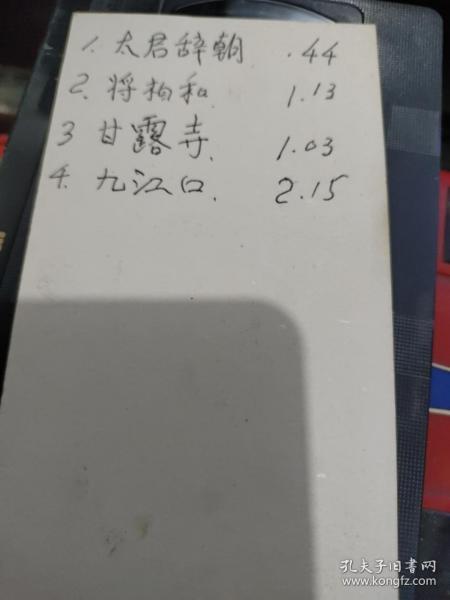 1. 太君辞朝 .44
2. 将相和 1.13
3 甘露寺. 1.03
4. 九江口. 2.15
孔夫子旧书网
www.kongfz.com